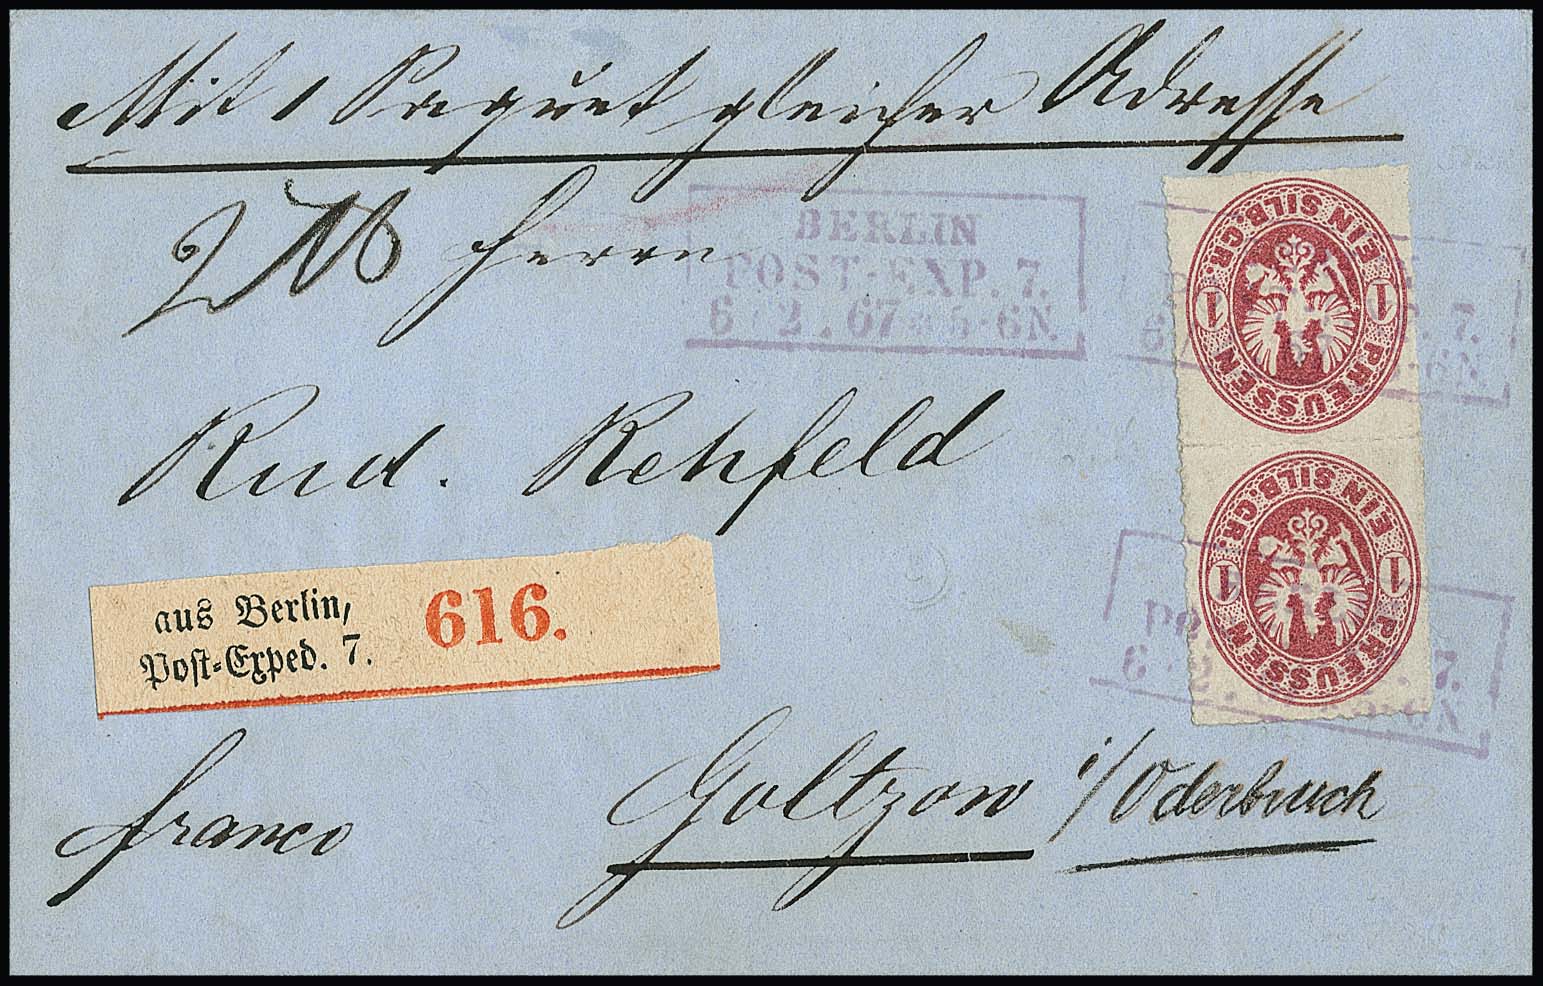 Mit 1 Paquet gleicher Adresse
Herrn
BERLIN
POST-EXP. 7.
6 2. 67 * 5-6N.
Rud. Rehfeld
EIN SILB. GR.
1 1
PREUSSEN
EIN SILB. GR.
1 1
PREUSSEN
aus Berlin,
Post-Exped. 7.
616.
franco
Goltzow i/Oderbruch